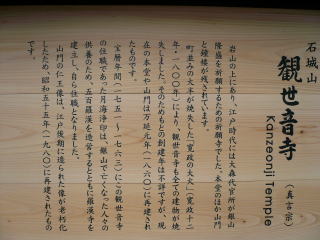 石城山
観世音寺
(真言宗)
Kanzeonji Temple
岩山の上にあり、江戸時代には大森代官所が銀山
隆盛を祈願するための祈願寺でした。本堂のほか山門
と鐘楼が残されています。
町並みの大半が焼失した「寛政の大火」(寛政十二
年・一八〇〇年)により、観世音寺も全ての建物が焼
失しました。そのためもとの創建年は不詳ですが、現
在の本堂や山門は万延元年(一八六〇)に再建され
たものです。
宝暦年間(一七五一~一七六三)にこの観世音寺
の住職であった月海浄印は、銀山で亡くなった人々の
供養のため、五百羅漢を造営するとともに羅漢寺を
建立し、自ら住職となりました。
山門の仁王像は、江戸後期に造られた像が老朽化
したため、昭和五十五年(一九八〇)に再建されたもの
です。